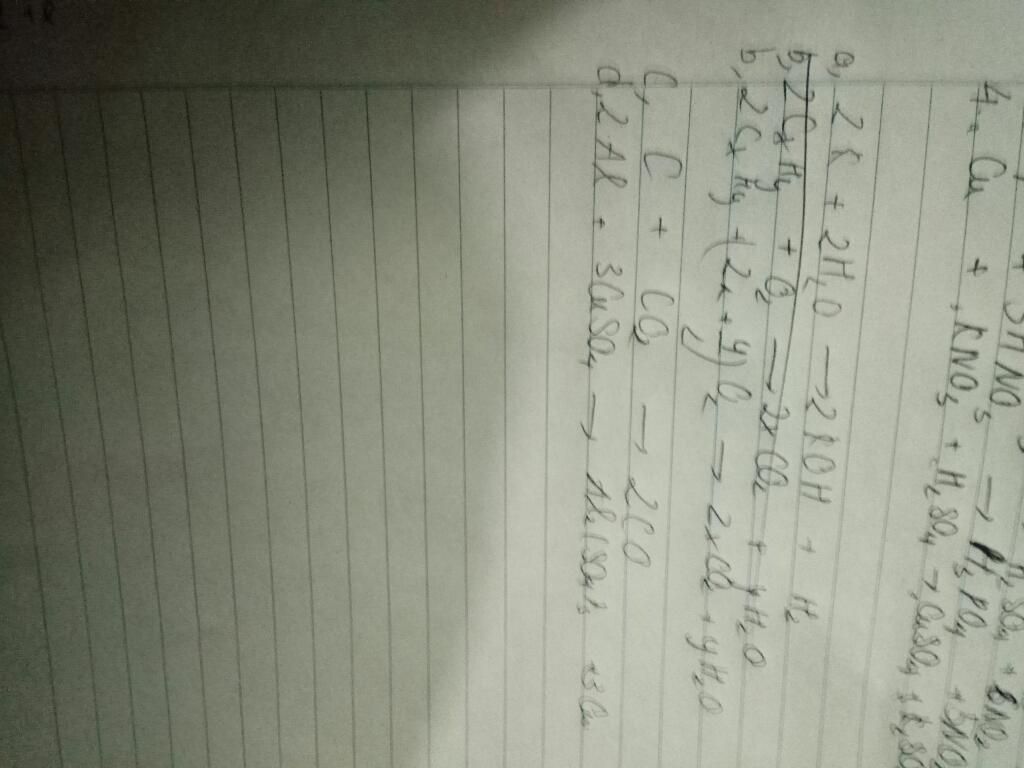 3HNO3 → H3PO4 + 5NO2
4.. Cu + KNO3 + H2SO4 → CuSO4 + K2SO
a, 2K + 2H2O → 2KOH + H2
b, 2CxHy + O2 → 2xCO2 + yH2O
b, 2CxHy + (2x + y/2)O2 → 2xCO2 + yH2O
C, C + CO2 → 2CO
d, 2Al + 3CuSO4 → Al2(SO4)3 + 3Cu